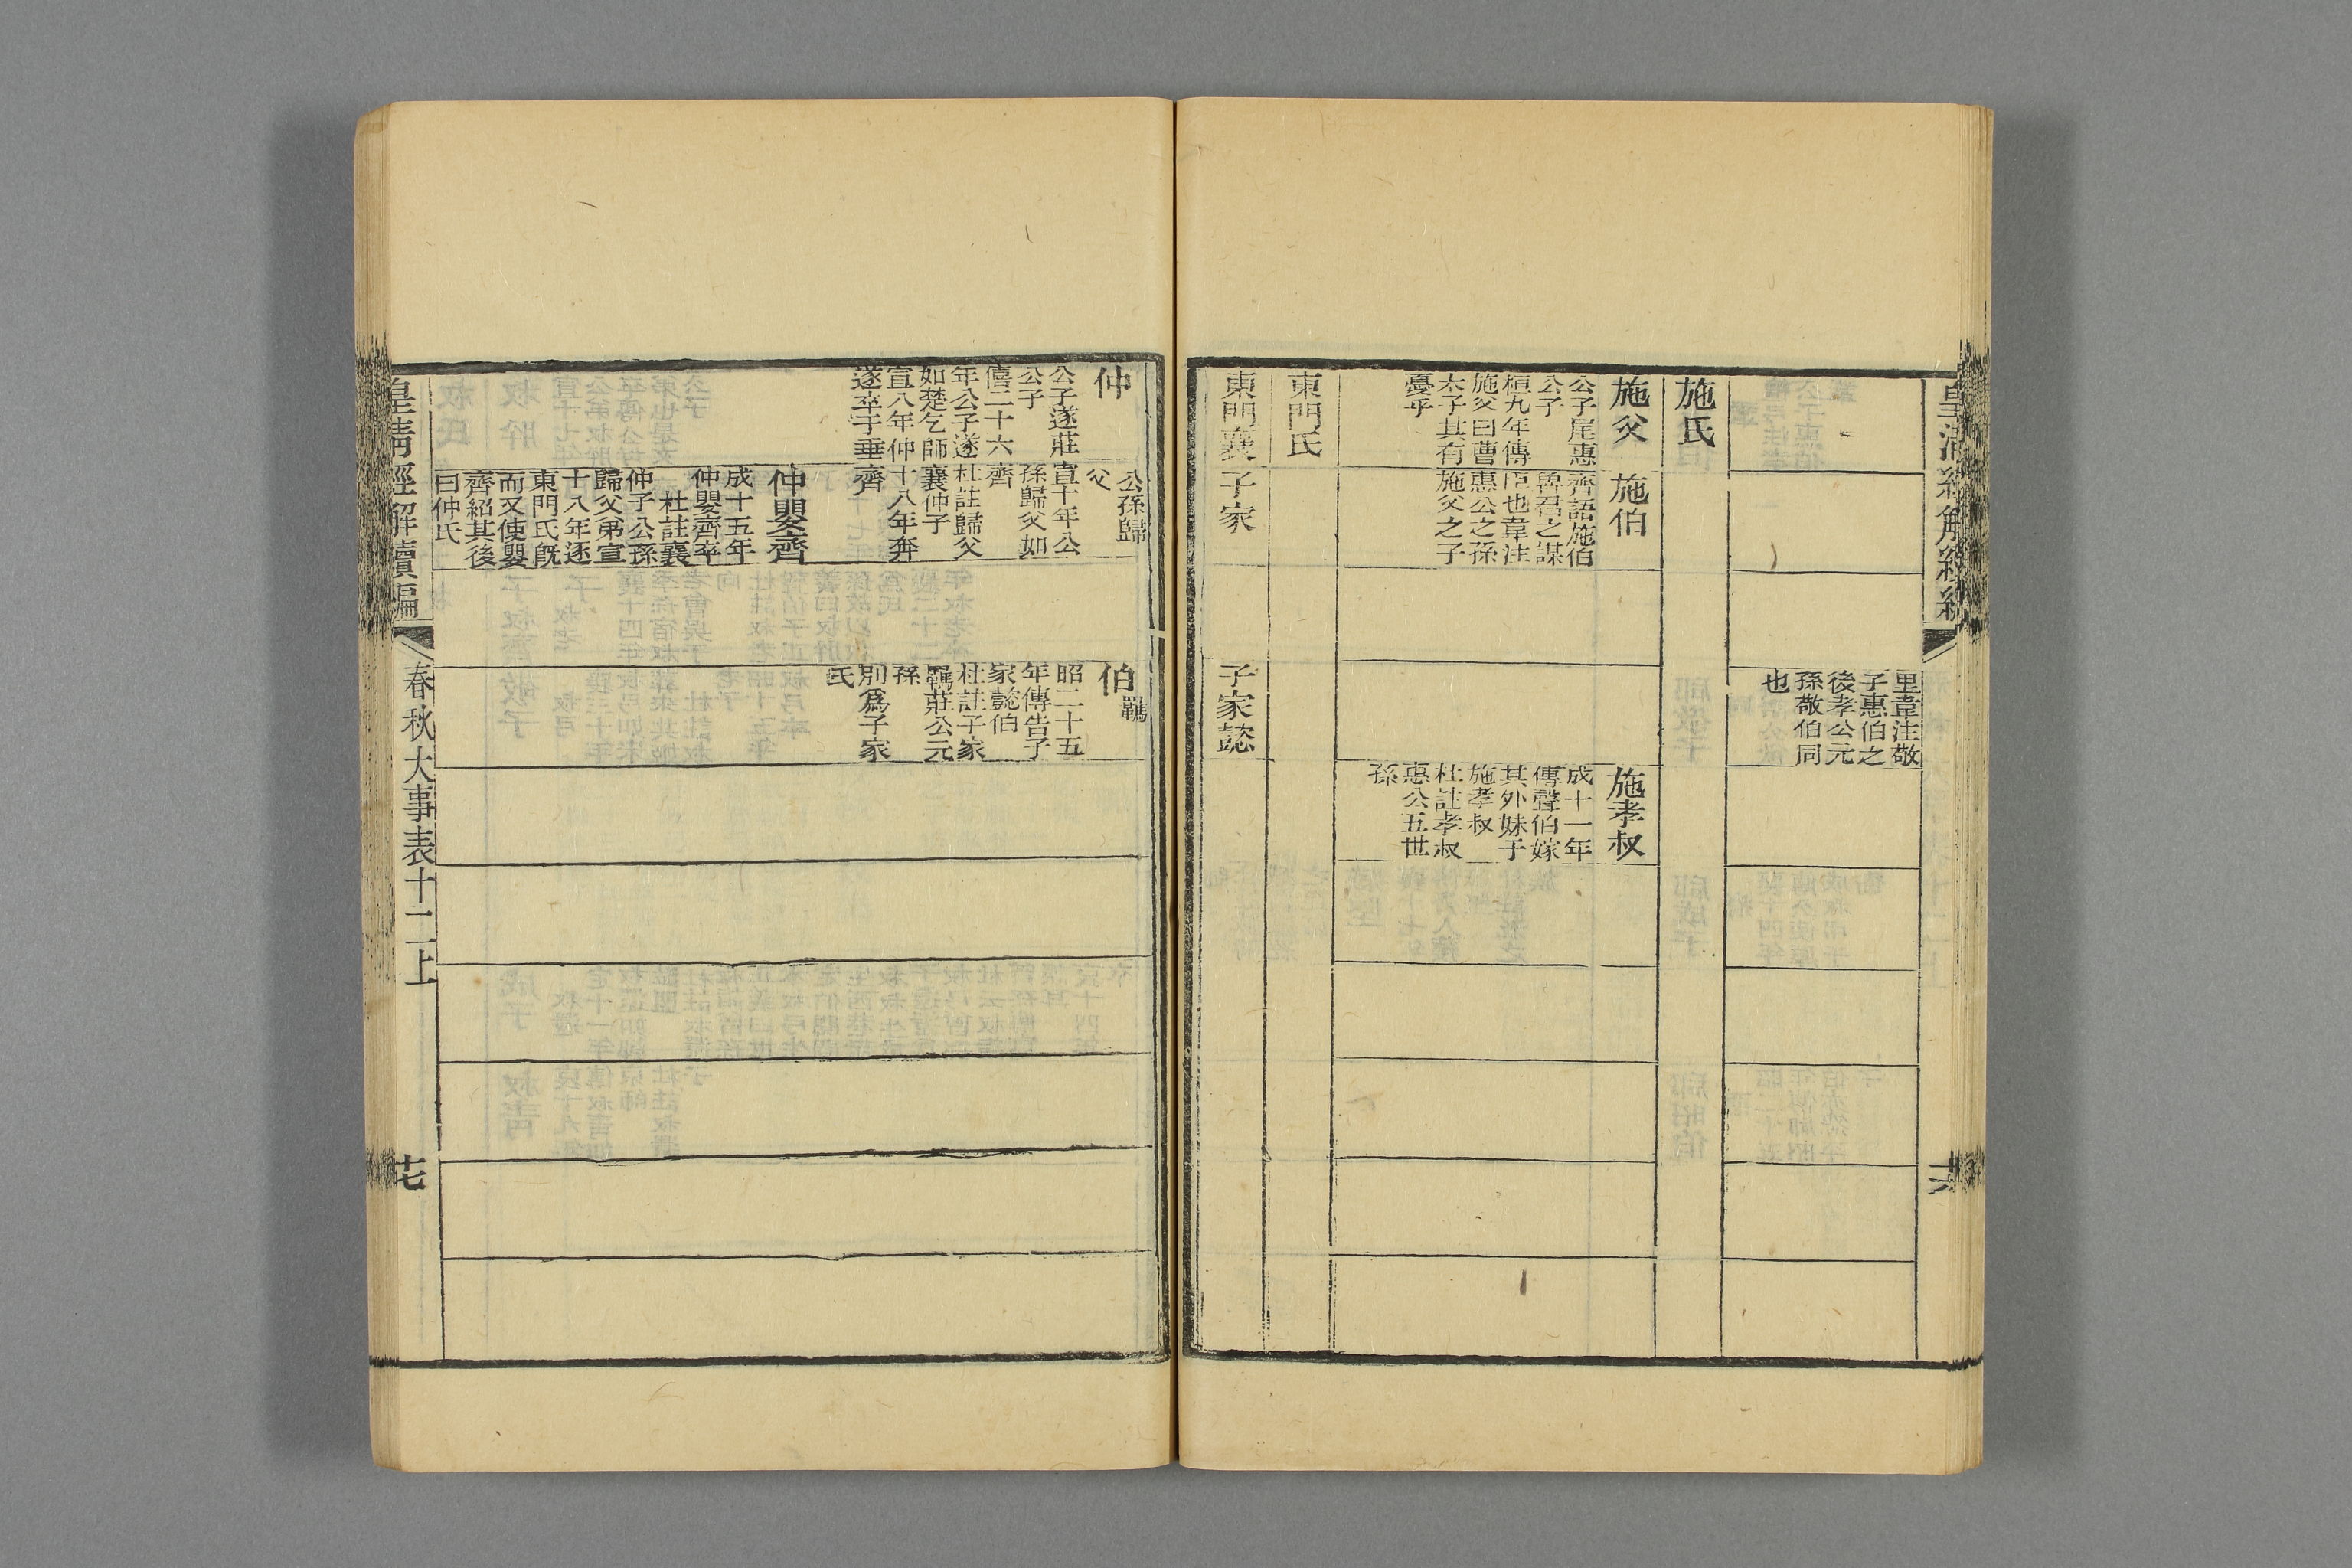 里韋注敬
子惠伯之
後孝公元
孫敬伯同
也
施氏
施父
公子尾惠
公子
桓九年傳
施父曰曹
太子其有
憂乎
施伯
齊語施伯
魯君之謀
臣也韋注
惠公之孫
施父之子
施孝叔
成十一年
傳聲伯嫁
其外妹于
施孝叔
杜註孝叔
惠公五世
孫
東門氏
東門襄
子家
子家懿
仲
公子遂莊
公子
僖二十六
年公子遂
如楚乞師
宣八年仲
遂卒于垂
公孫歸
父
宣十年公
孫歸父如
齊
杜註歸父
襄仲子
十八年奔
齊
仲嬰齊
成十五年
仲嬰齊卒
杜註襄
仲子公孫
歸父弟宣
十八年逐
東門氏旣
而又使嬰
齊紹其後
曰仲氏
伯
羈
昭二十五
年傳告子
家懿伯
杜註子家
羈莊公元
孫
別爲子家
氏
皇清經解續編
春秋大事表十二上
七